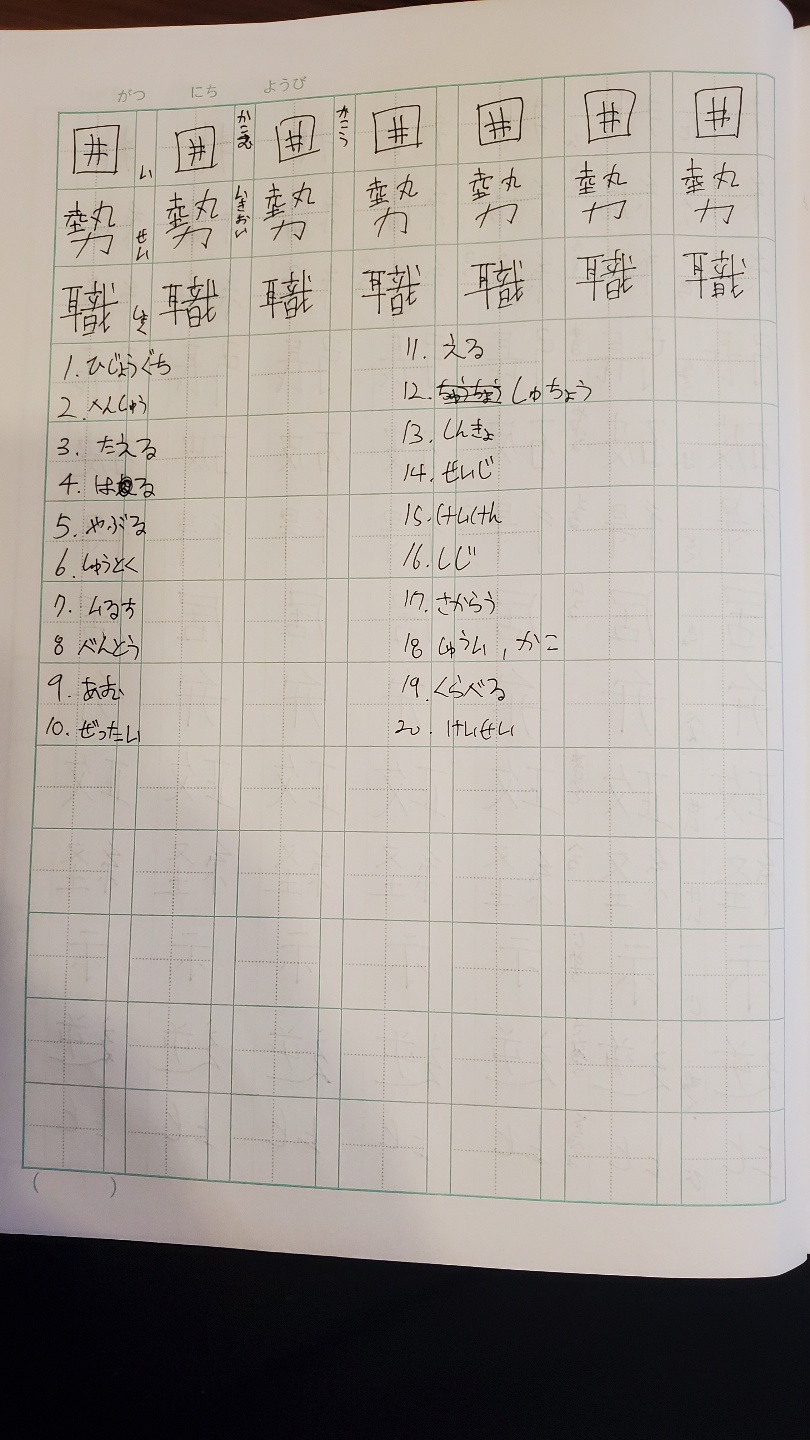 がつ にち ようび
囲 い 囲 かこむ 囲 かこう 囲 囲 囲 囲
勢 せい 勢 いきおい 勢 勢 勢 勢 勢
職 しょく 職 職 職 職 職 職
1. ひじょうぐち
2. へんしゅう
3. たえる
4. はる
5. やぶる
6. しゅうとく
7. いるす
8 べんとう
9. あむ
10. ぜったい
11. える
12. しゅちょう
13. しんきょ
14. せいじ
15. けんけん
16. しじ
17. さからう
18 しゅうい, かこ
19. くらべる
20. けいせい
( )